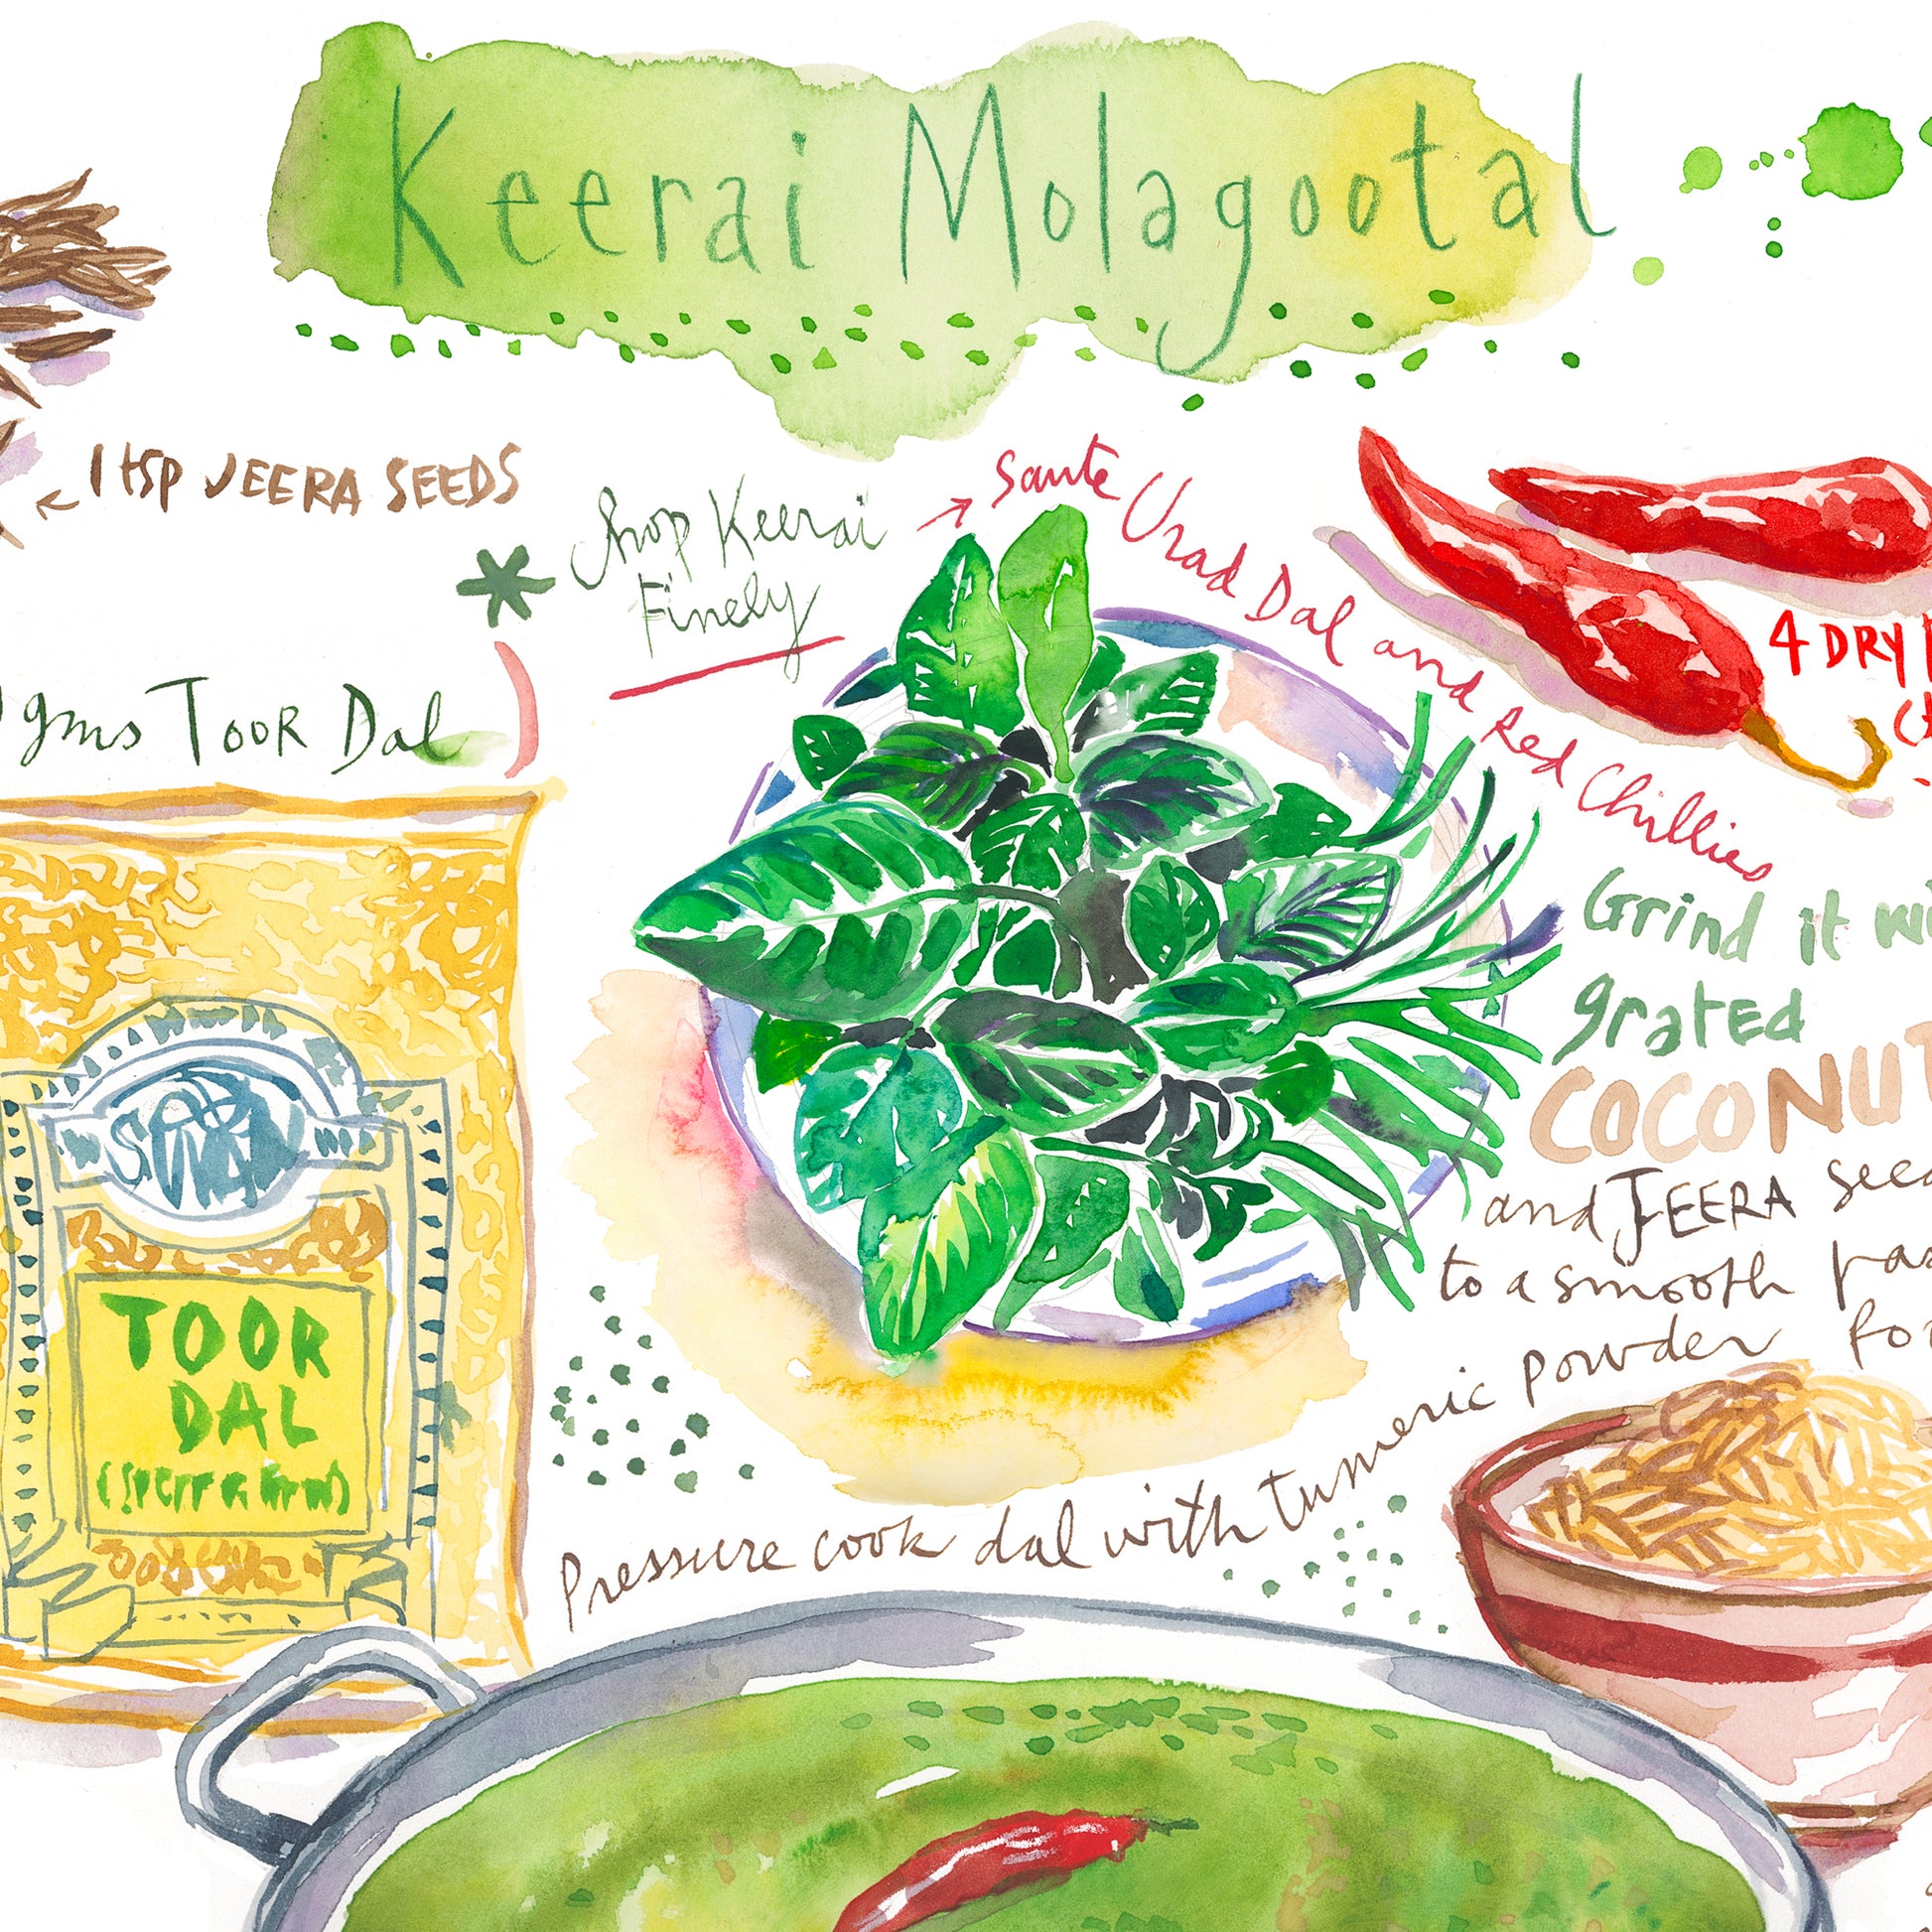 Keerai Molagootal
1 tsp JEERA SEEDS
Chop Keerai
Finely
Saute Urad Dal and Red Chillies
4 DRY
gms TOOR Dal
Grind it
grated
COCONUT
and JEERA
to a smooth
Pressure cook dal with turmeric powder
TOOR
DAL